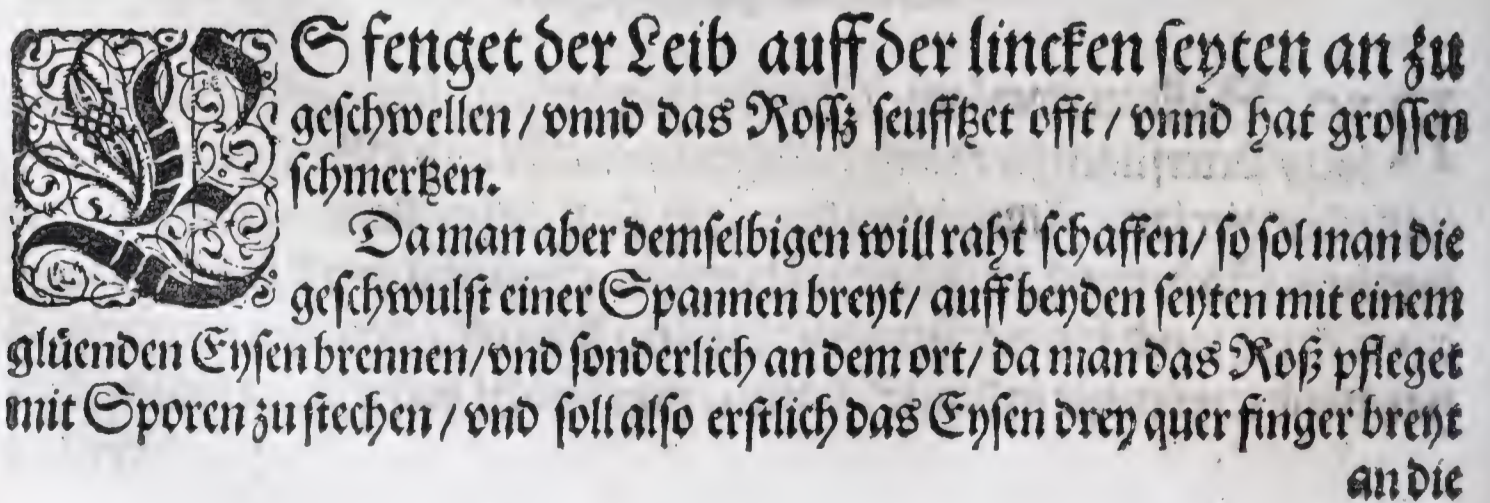 ES fenget der Leib auff der lincken seyten an zu
geschwellen / vnnd das Rossz seufftzet offt / vnnd hat grossen
schmertzen.
Da man aber demselbigen will raht schaffen / so sol man die
geschwulst einer Spannen breyt / auff beyden seyten mit einem
glüenden Eysen brennen / vnd sonderlich an dem ort / da man das Roß pfleget
mit Sporen zu stechen / vnd soll also erstlich das Eysen drey quer finger breyt
an die